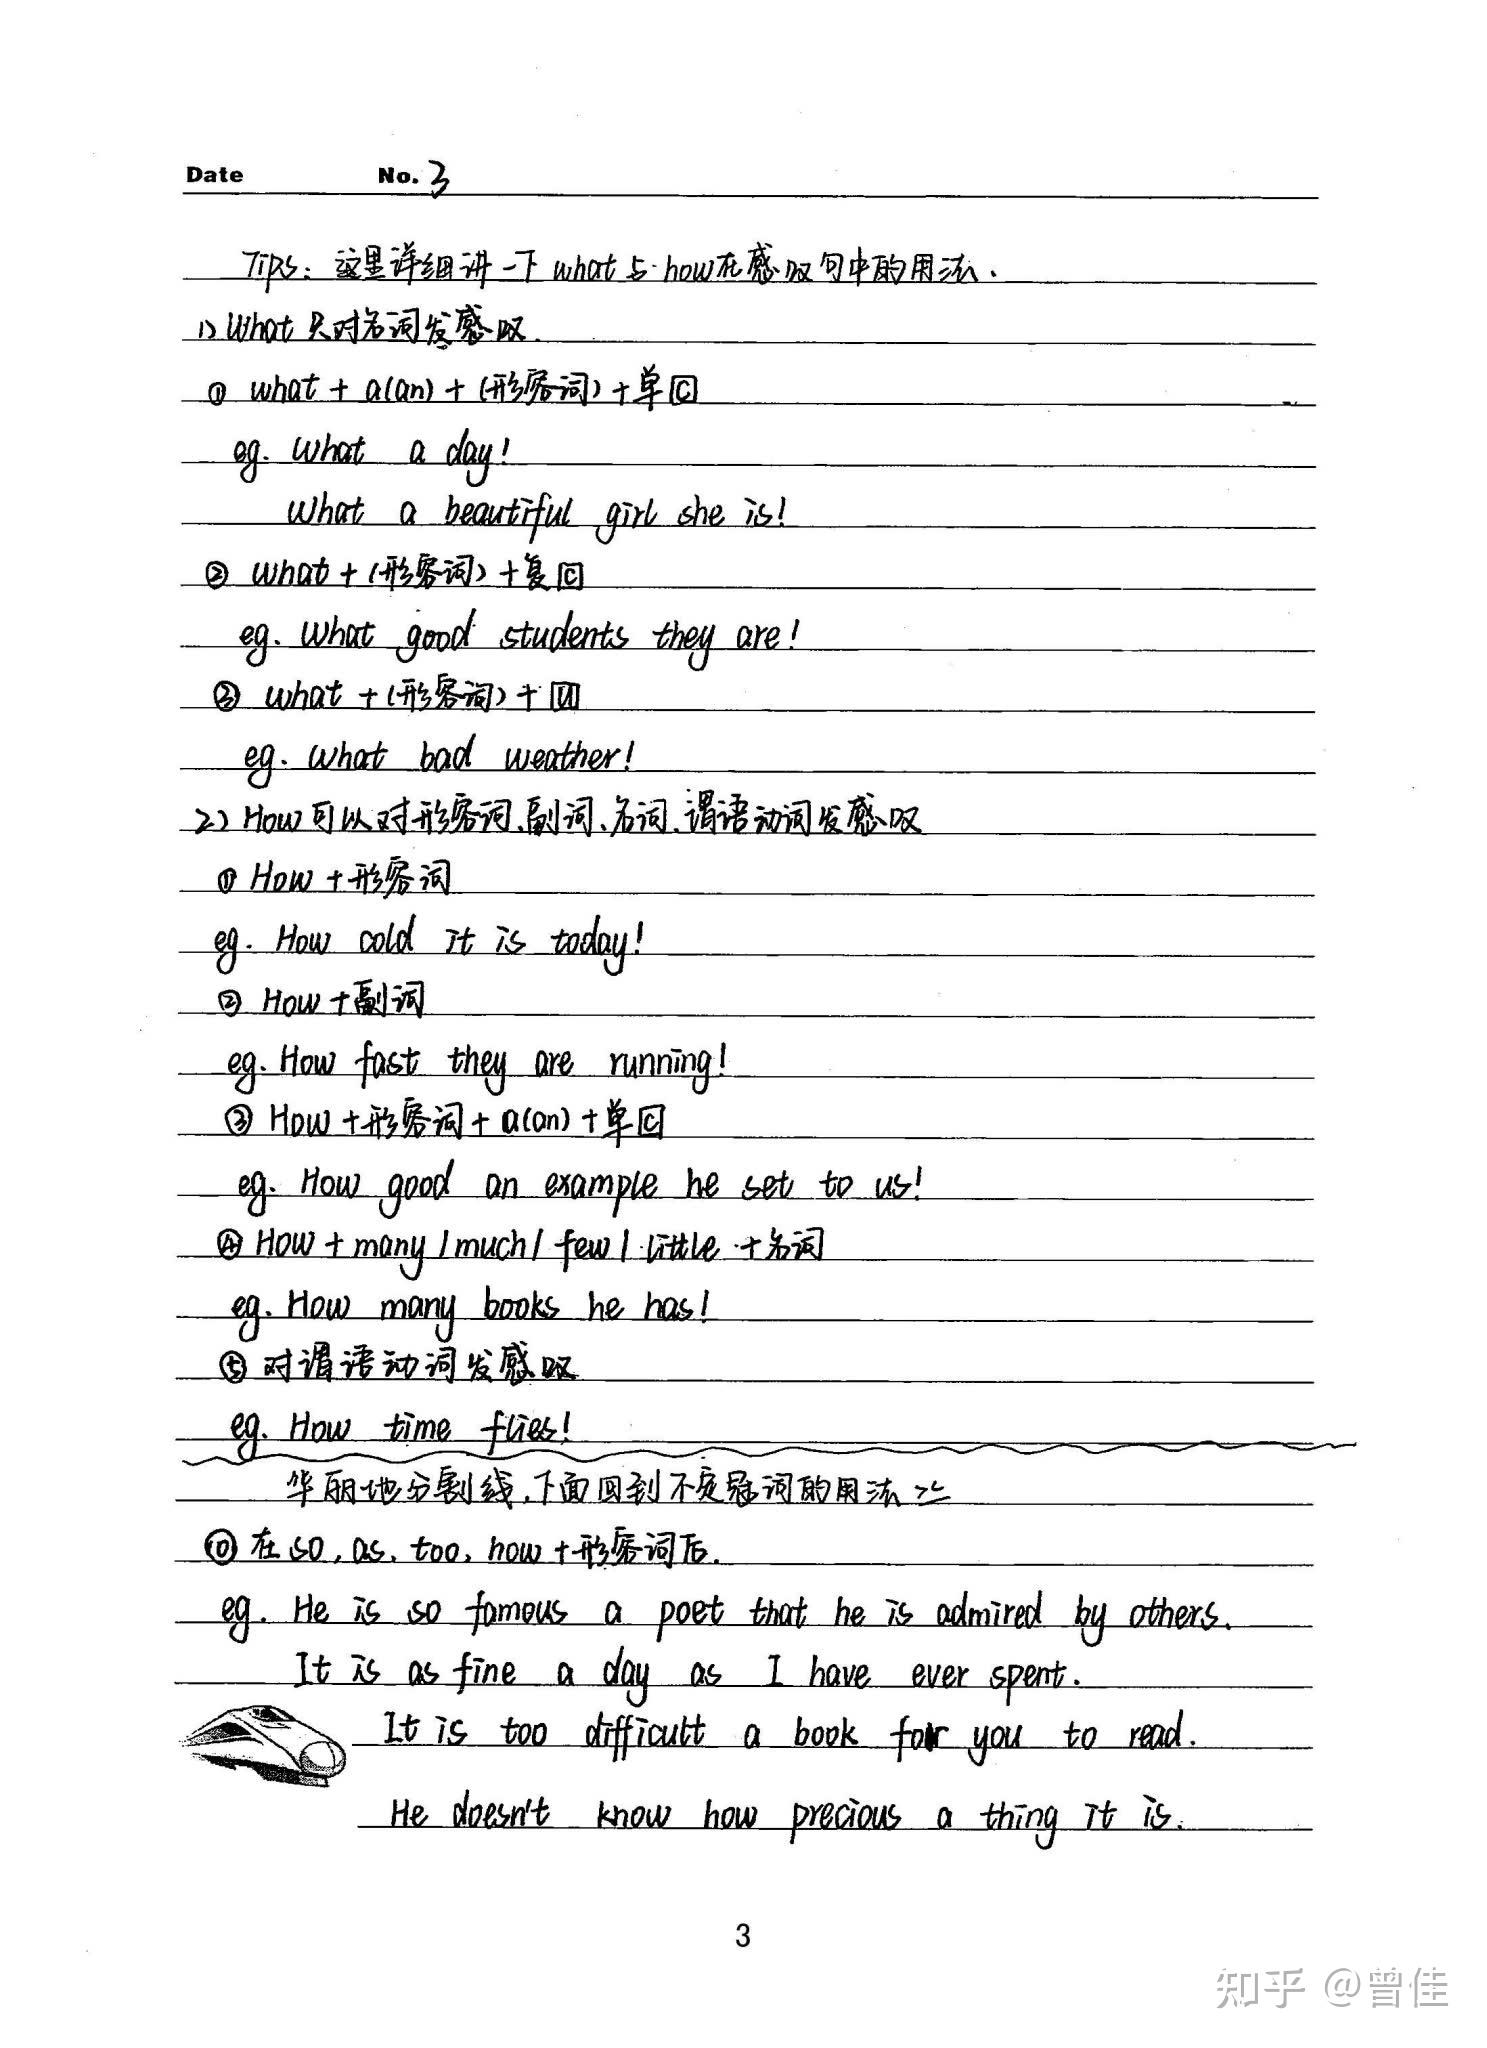 Date No. 3
Tips: 这里详细讲一下 what 与 how在感叹句中的用法.
1) What 只对名词发感叹.
① what + a(an) + (形容词) + 单[C]
eg. What a day!
What a beautiful girl she is!
② what + (形容词) + 复[C]
eg. What good students they are!
③ what + (形容词) + [U]
eg. What bad weather!
2) How可以对形容词、副词、名词、谓语动词发感叹
① How + 形容词
eg. How cold it is today!
② How + 副词
eg. How fast they are running!
③ How + 形容词 + a(an) + 单[C]
eg. How good an example he set to us!
④ How + many / much / few / little + 名词
eg. How many books he has!
⑤ 对谓语动词发感叹
eg. How time flies!
华丽地分割线,下面回到不定冠词的用法
⑩ 在 so, as, too, how + 形容词后.
eg. He is so famous a poet that he is admired by others.
It is as fine a day as I have ever spent.
It is too difficult a book for you to read.
He doesn't know how precious a thing it is.
3
知乎 @曾佳